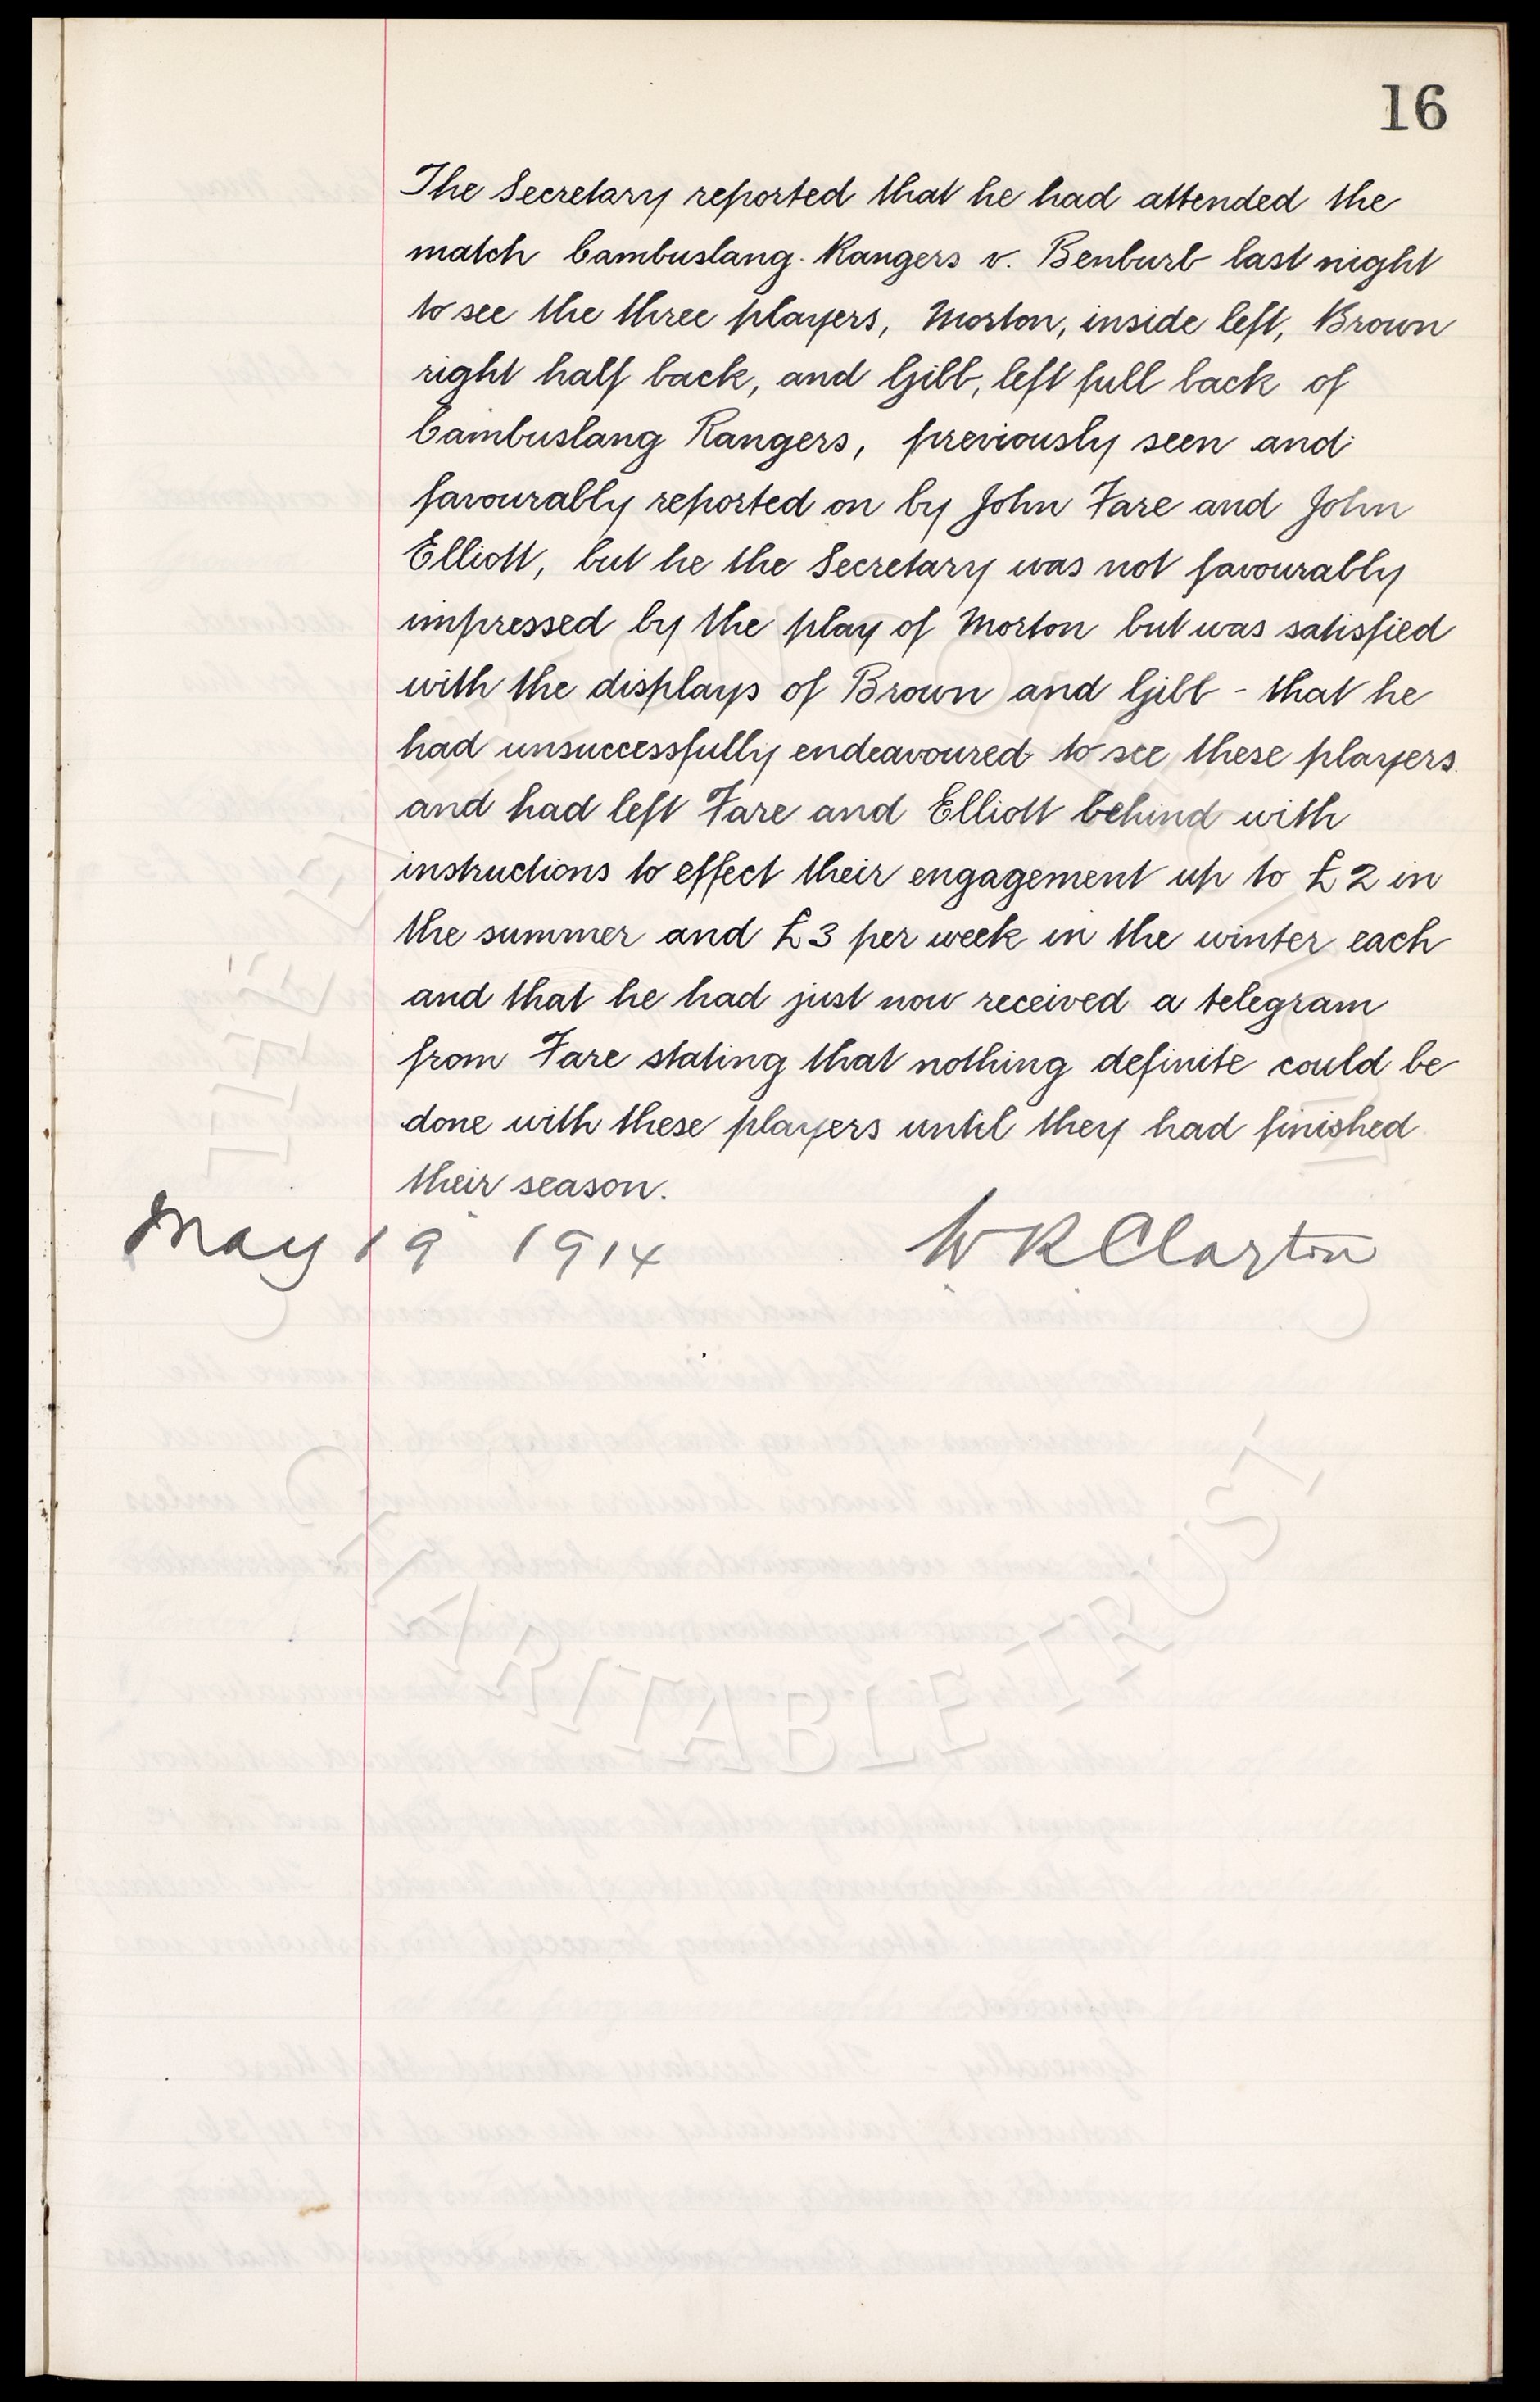 16
The Secretary reported that he had attended the
match Cambuslang Rangers v. Benburb last night
to see the three players, Morton, inside left, Brown
right half back, and Gibb, left full back of
Cambuslang Rangers, previously seen and
favourably reported on by John Fare and John
Elliott, but he the Secretary was not favourably
impressed by the play of Morton but was satisfied
with the displays of Brown and Gibb - that he
had unsuccessfully endeavoured to see these players
and had left Fare and Elliott behind with
instructions to effect their engagement up to £2 in
the summer and £3 per week in the winter each
and that he had just now received a telegram
from Fare stating that nothing definite could be
done with these players until they had finished
their season.
May 19 1914 W R Clayton